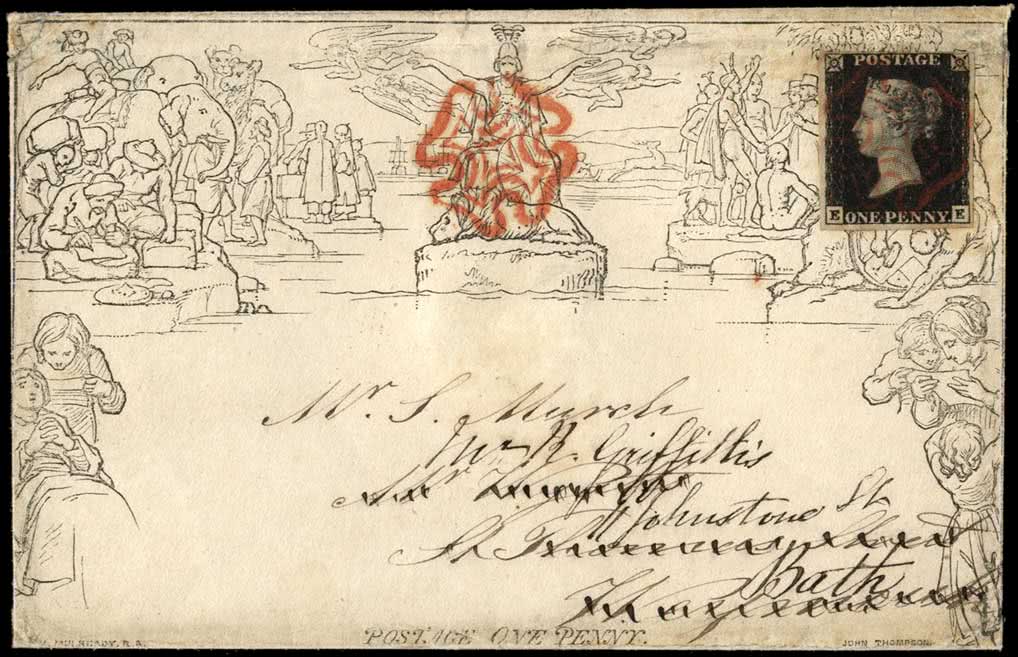 POSTAGE
E ONE PENNY. E
Mr. S. Murch
Mr R. Griffiths
Johnstone St
Bath
POSTAGE ONE PENNY.
W. MULREADY, R.A.
JOHN THOMPSON.